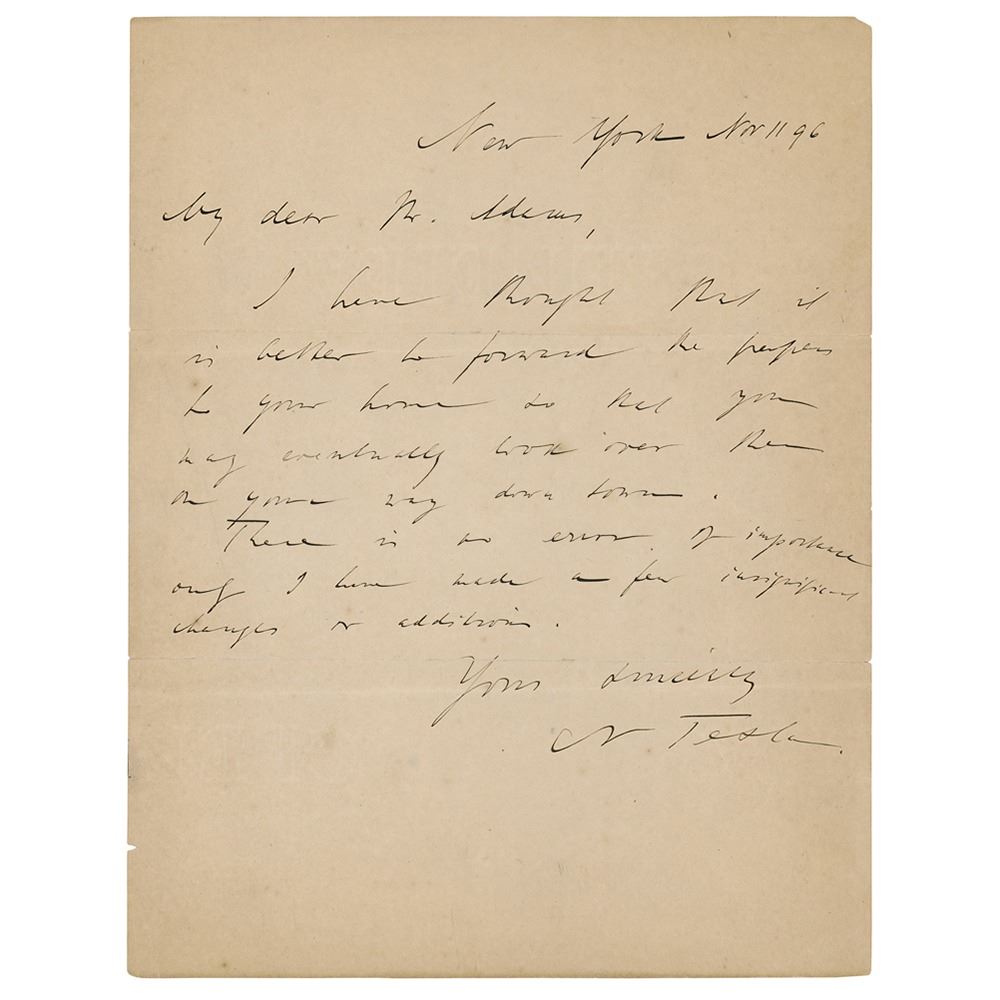 New York Nov 11 96
My dear Mr. Adams,
I have thought that it
is better to forward the papers
to your home so that you
may eventually look over them
on your way down town.
There is no error of importance
only I have made a few insignificant
changes or additions.
Yours sincerely
N Tesla.